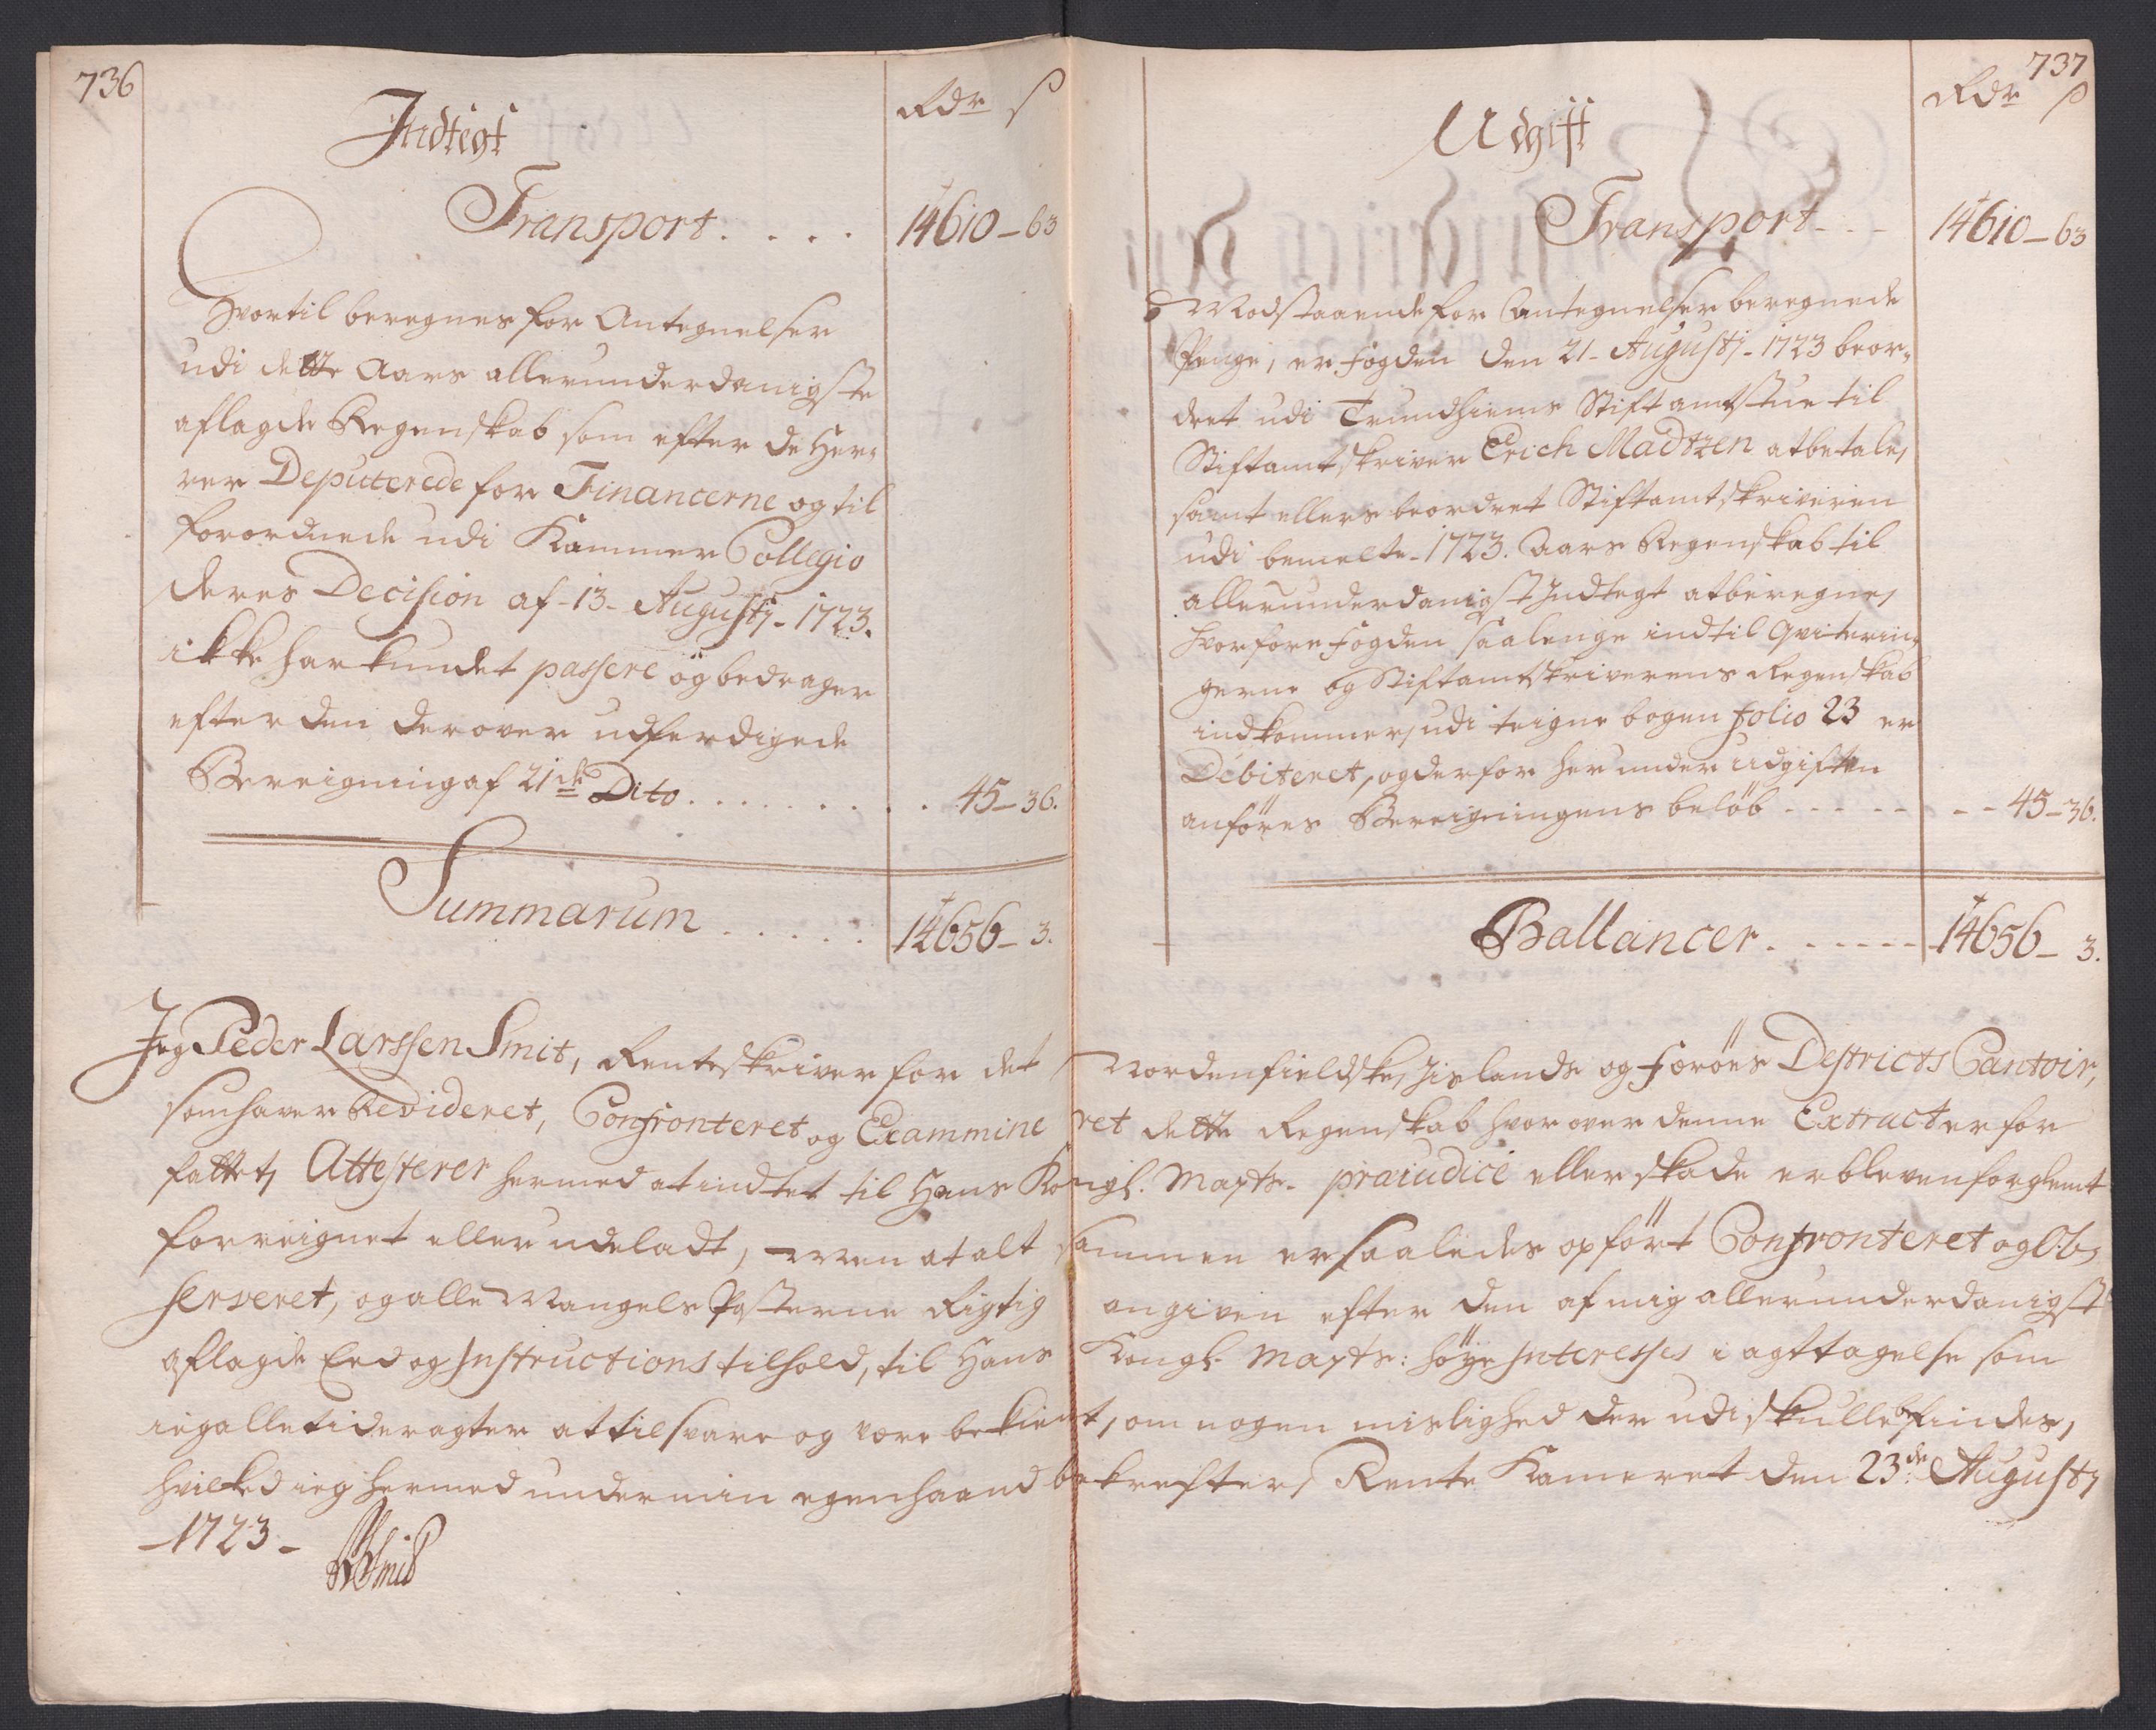 736
Indtegt
Rdr ß
Transport . . . . 14610 – 63
Hvortil beregnes for Antegnelser
udi dette Aars allerunderdanigste
aflagde Regenskab som efter de Her,,
rer Deputerede for Financerne og til
forordnede udi Kammer Collegio
deres Decision af 13 Augustj 1723.
ikke har kundet passere og bedrager
efter den derover udferdigede
Bereigning af 21de Dito . . . . . . . . . 45 – 36.
Summarum . . . . . 14656 – 3.
737
Udgift
Rdr ß
Transport - - - 14610 – 63
Modstaaende for Antegnelser beregnede
Penge, er Fogden den 21 Augustj 1723 beor,,
dret udi Trundhiems Stiftamtstue til
Stiftamtskriver Erich Madtzen at betale,
samt ellers beordret Stiftamtskriveren
udi bemelte 1723. Aars Regenskab til
allerunderdanigst Indtegt at beregne,
hvorfore Fogden saalenge indtil Qviterin,,
gerne og Stiftamtskriverens Regenskab
indkommer, udi teigne bogen folio 23 er
Debiteret, og derfor her under udgiften
anføres Bereigningens beløb - - - - - - - 45 – 36.
Ballancer . - - - - - 14656 – 3.
Jeg Peder Larssen Smit, Renteskriver for det Nordenfieldske, Jislands og Færöes Destricts Contoir,
som haver Revideret, Confronteret og Exammineret dette Regenskab hvorover denne Extract er for
fattet, Attesterer hermed at indtet til Hans Kongl. Mayts. præiudice eller skade er bleven forglemt
forreignet eller udeladt, men at alt sammen er saaledes opført Confronteret og Ob,,
serveret, og alle Mangels Posterne Rigtig angiven efter den af mig allerunderdanigst
aflagde Eed og Instructions tilhold, til Hans Kongl. Mayts: høye Interesses i agttagelse som
ieg alletider agter at tilsvare og være bekient, om nogen mislighed der udi skulle befindes,
hvilked ieg hermed under min egen haand bekrefter, Rente Kameret den 23de Augustj
1723 –
PLSmit